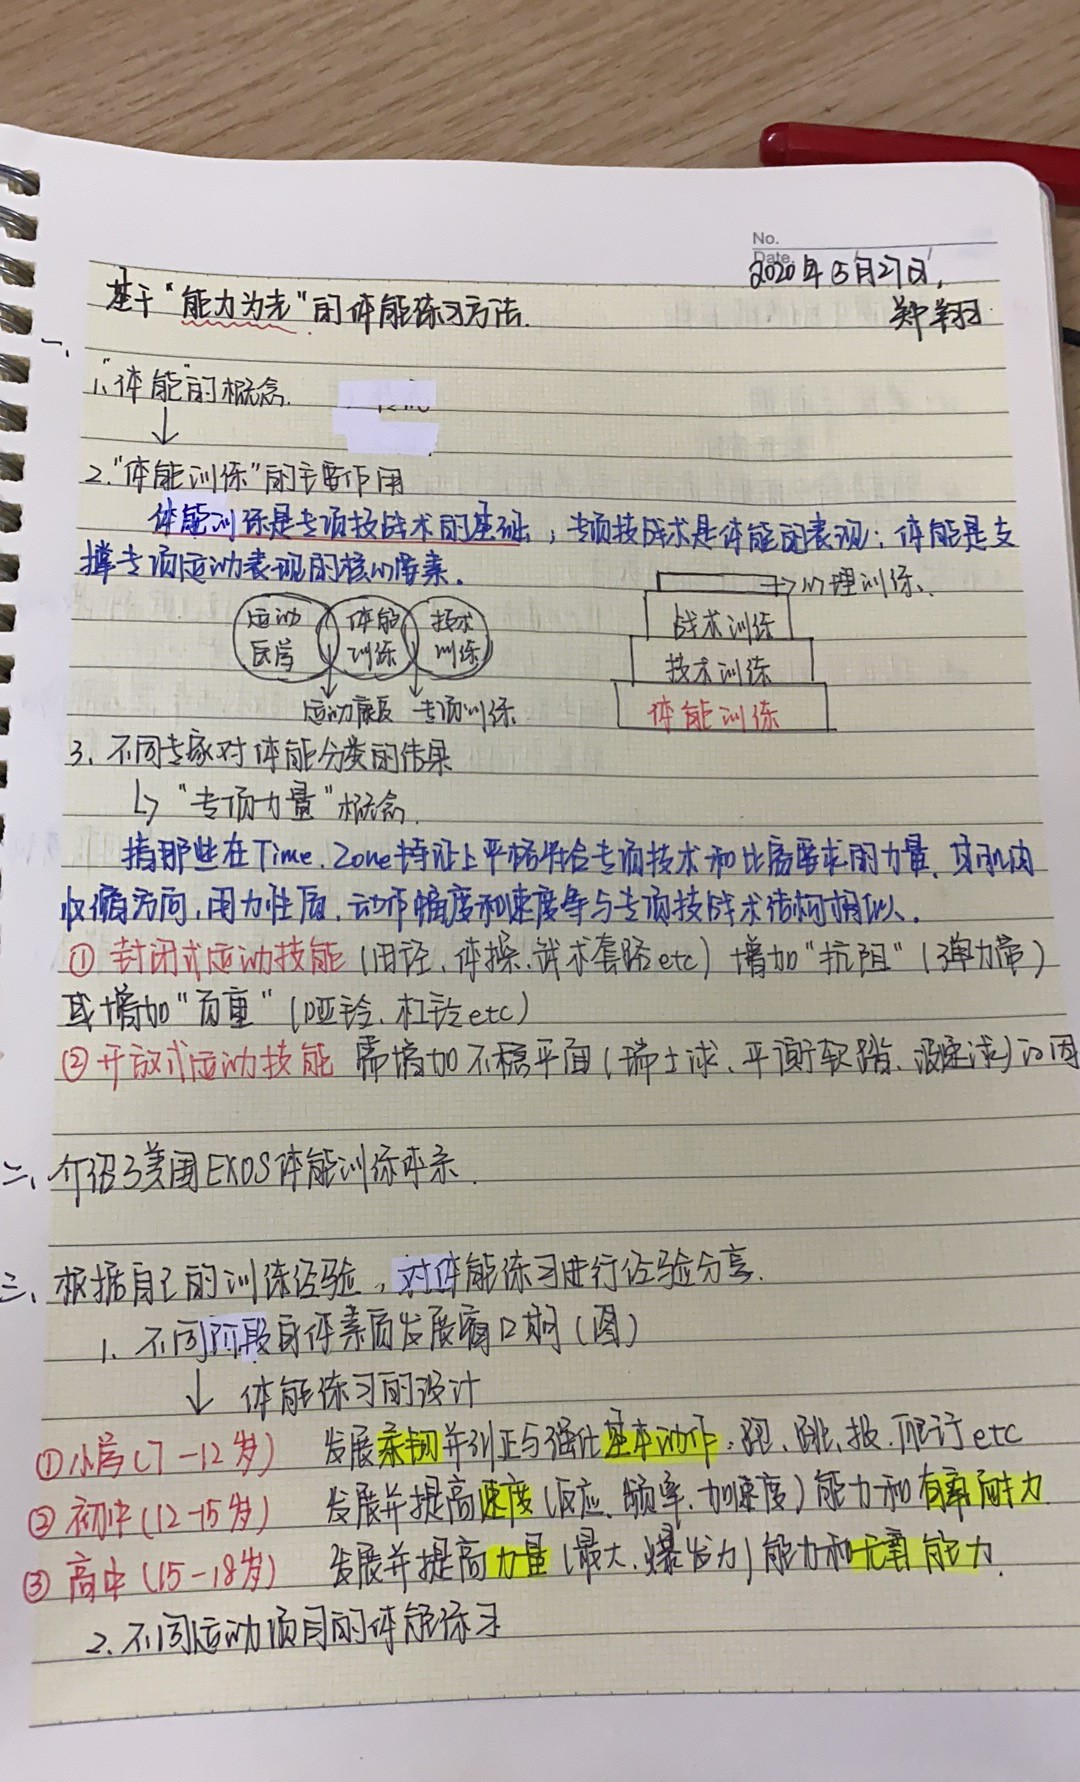 No.
Date.
2020年05月27日
郑翔
基于“能力为先”的体能练习方法.
一、
1.“体能”的概念.
↓
2.“体能训练”的主要作用
体能训练是专项技战术的基础；专项技战术是体能的表现；体能是支
撑专项运动表现的核心要素.
运动医学 体能训练 技术训练
运动康复 专项训练
→心理训练
战术训练
技术训练
体能训练
3. 不同专家对体能分类的结果
↳“专项力量”概念.
指那些在Time、Zone特征上严格符合专项技术和比赛要求的力量、其肌肉
收缩方向,用力性质、动作幅度和速度等与专项技战术结构相似.
① 封闭式运动技能(田径、体操、武术套路etc) 增加“抗阻”(弹力带)
或增加“负重”(哑铃、杠铃etc)
② 开放式运动技能 需增加不稳平面(瑞士球、平衡软踏、波速球)的因
二、介绍了美国EXOS体能训练体系.
三、根据自己的训练经验，对体能练习进行经验分享.
1. 不同阶段身体素质发展窗口期(图)
↓ 体能练习的设计
①小学(7-12岁) 发展柔韧并纠正与强化基本动作：跑、跳、投、爬行etc
②初中(12-15岁) 发展并提高速度(反应、频率、加速度)能力和有氧耐力
③高中(15-18岁) 发展并提高力量(最大、爆发力)能力和无氧能力.
2. 不同运动项目的体能练习